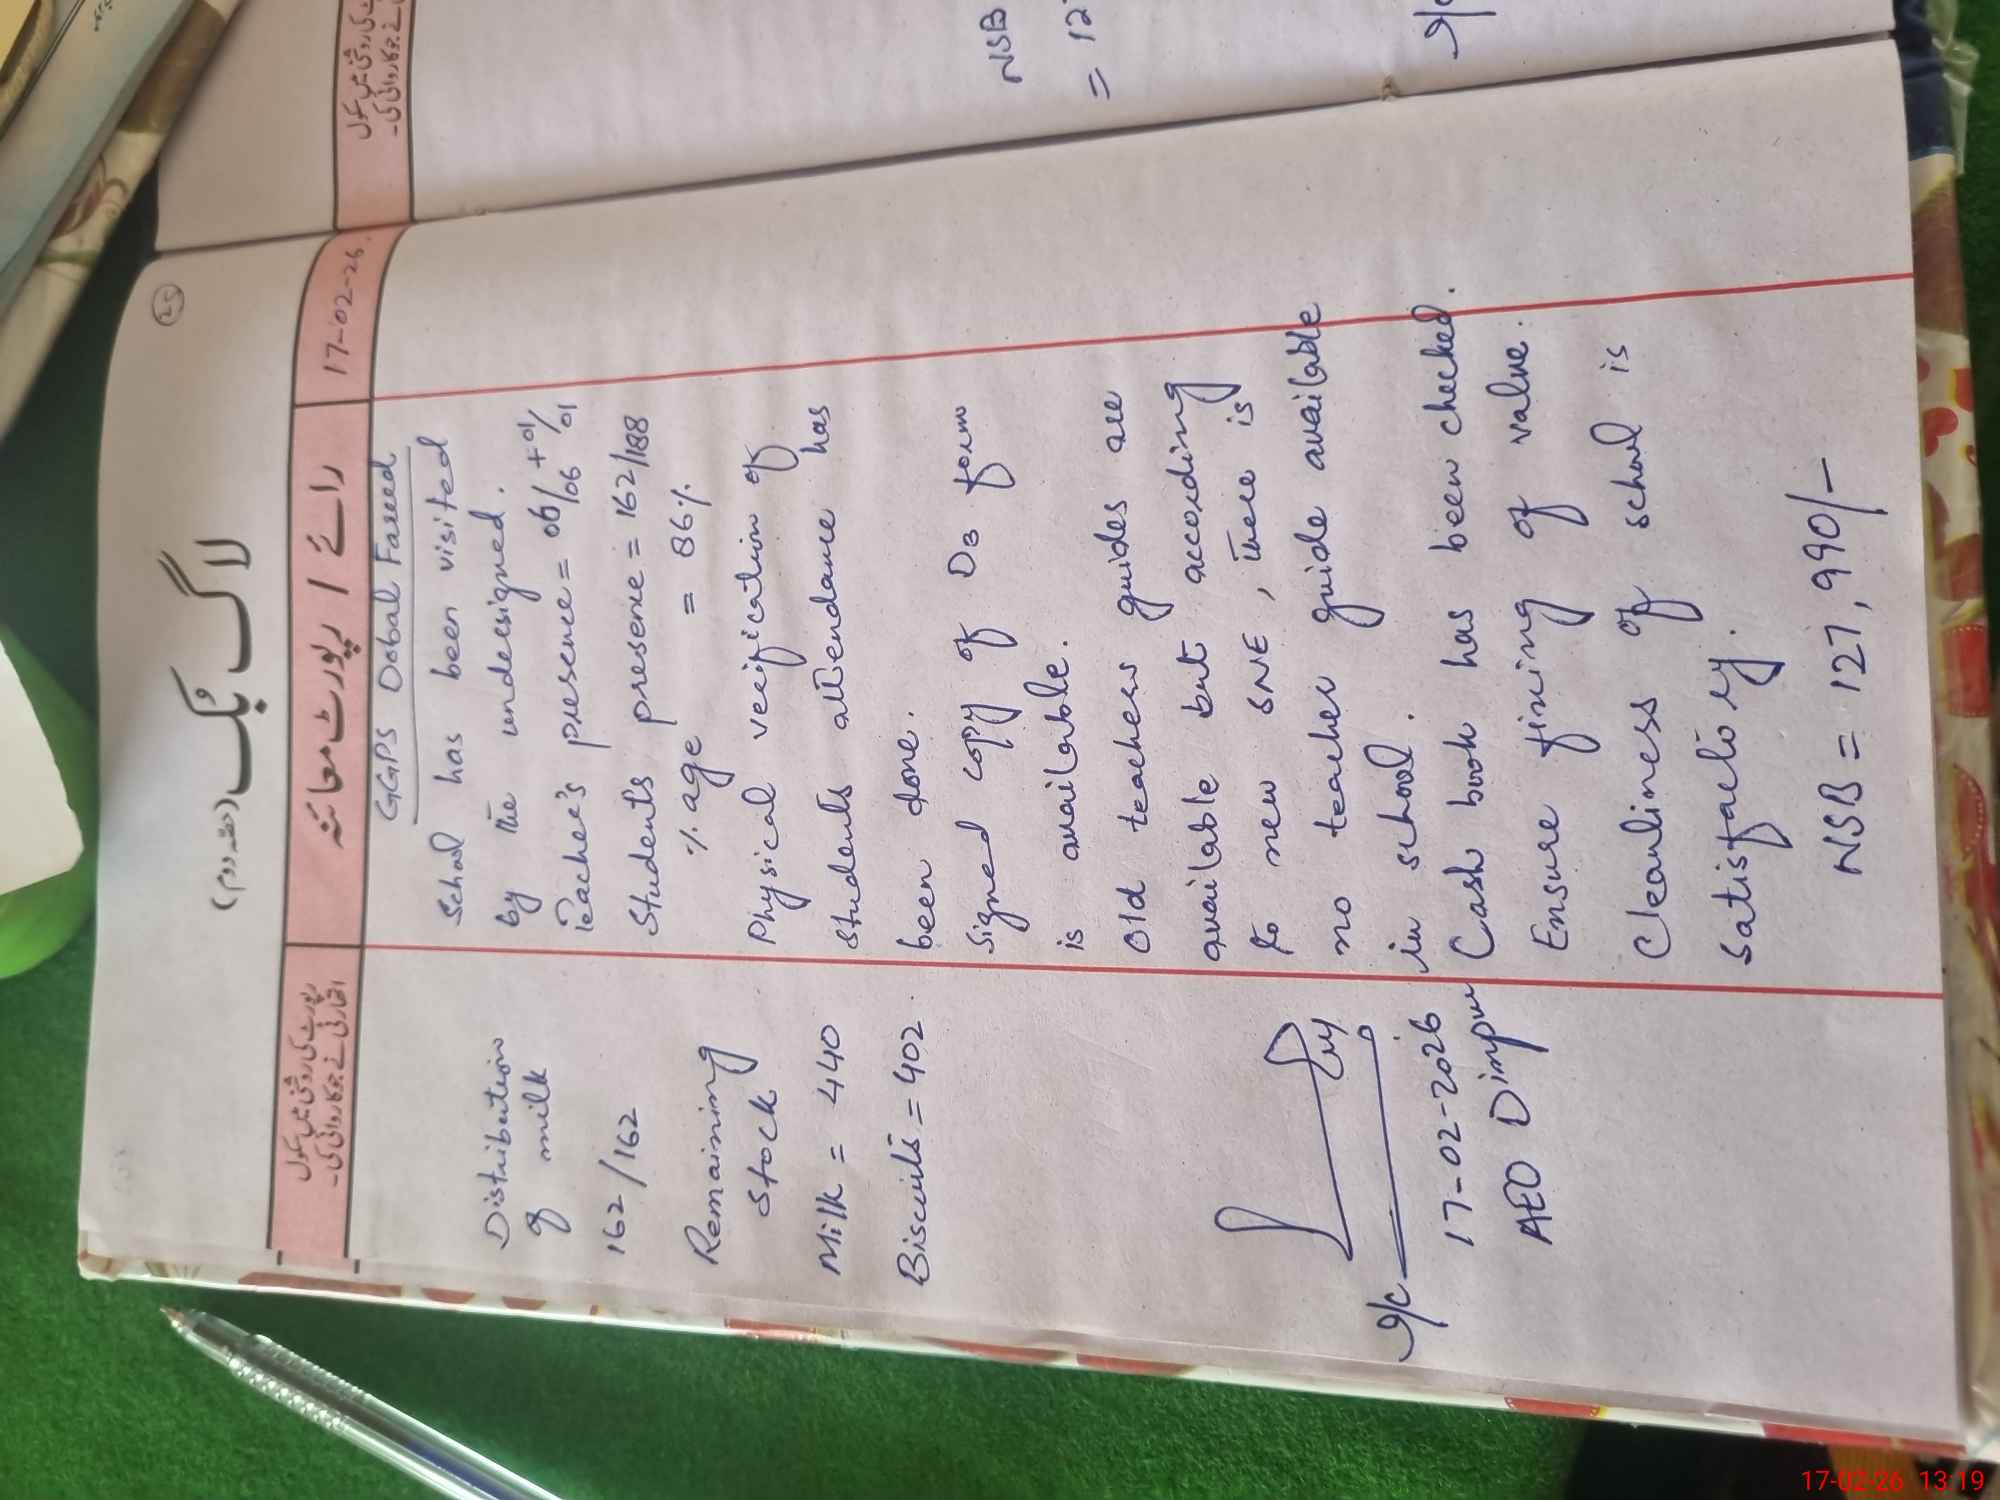 25
لاگ بُک
(حصہ دوم)
17-02-26
رائے / رپورٹ معائنہ
رپورٹ کی روشنی میں سکول
اتھارٹی نے جو کاروائی کی۔
GGPS Dobal Fareed
School has been visited
by the undersigned.
Teacher's presence = 06/06 + 01/01
Students presence = 162/188
% age = 86%
Physical verification of
students attendance has
been done.
Signed copy of D3 form
is available.
Old teachers guides are
available but according
to new SNE, there is
no teacher guide available
in school.
Cash book has been checked.
Ensure fixing of value.
Cleanliness of school is
satisfactory.
NSB = 127,990/-
Distribution
of milk
162/162
Remaining
Stock
Milk = 440
Biscuits = 402
17-02-2026
AEO
کی روشنی میں سکول
نے جو کاروائی کی۔
NSB
= 12
17-02-26 13:19